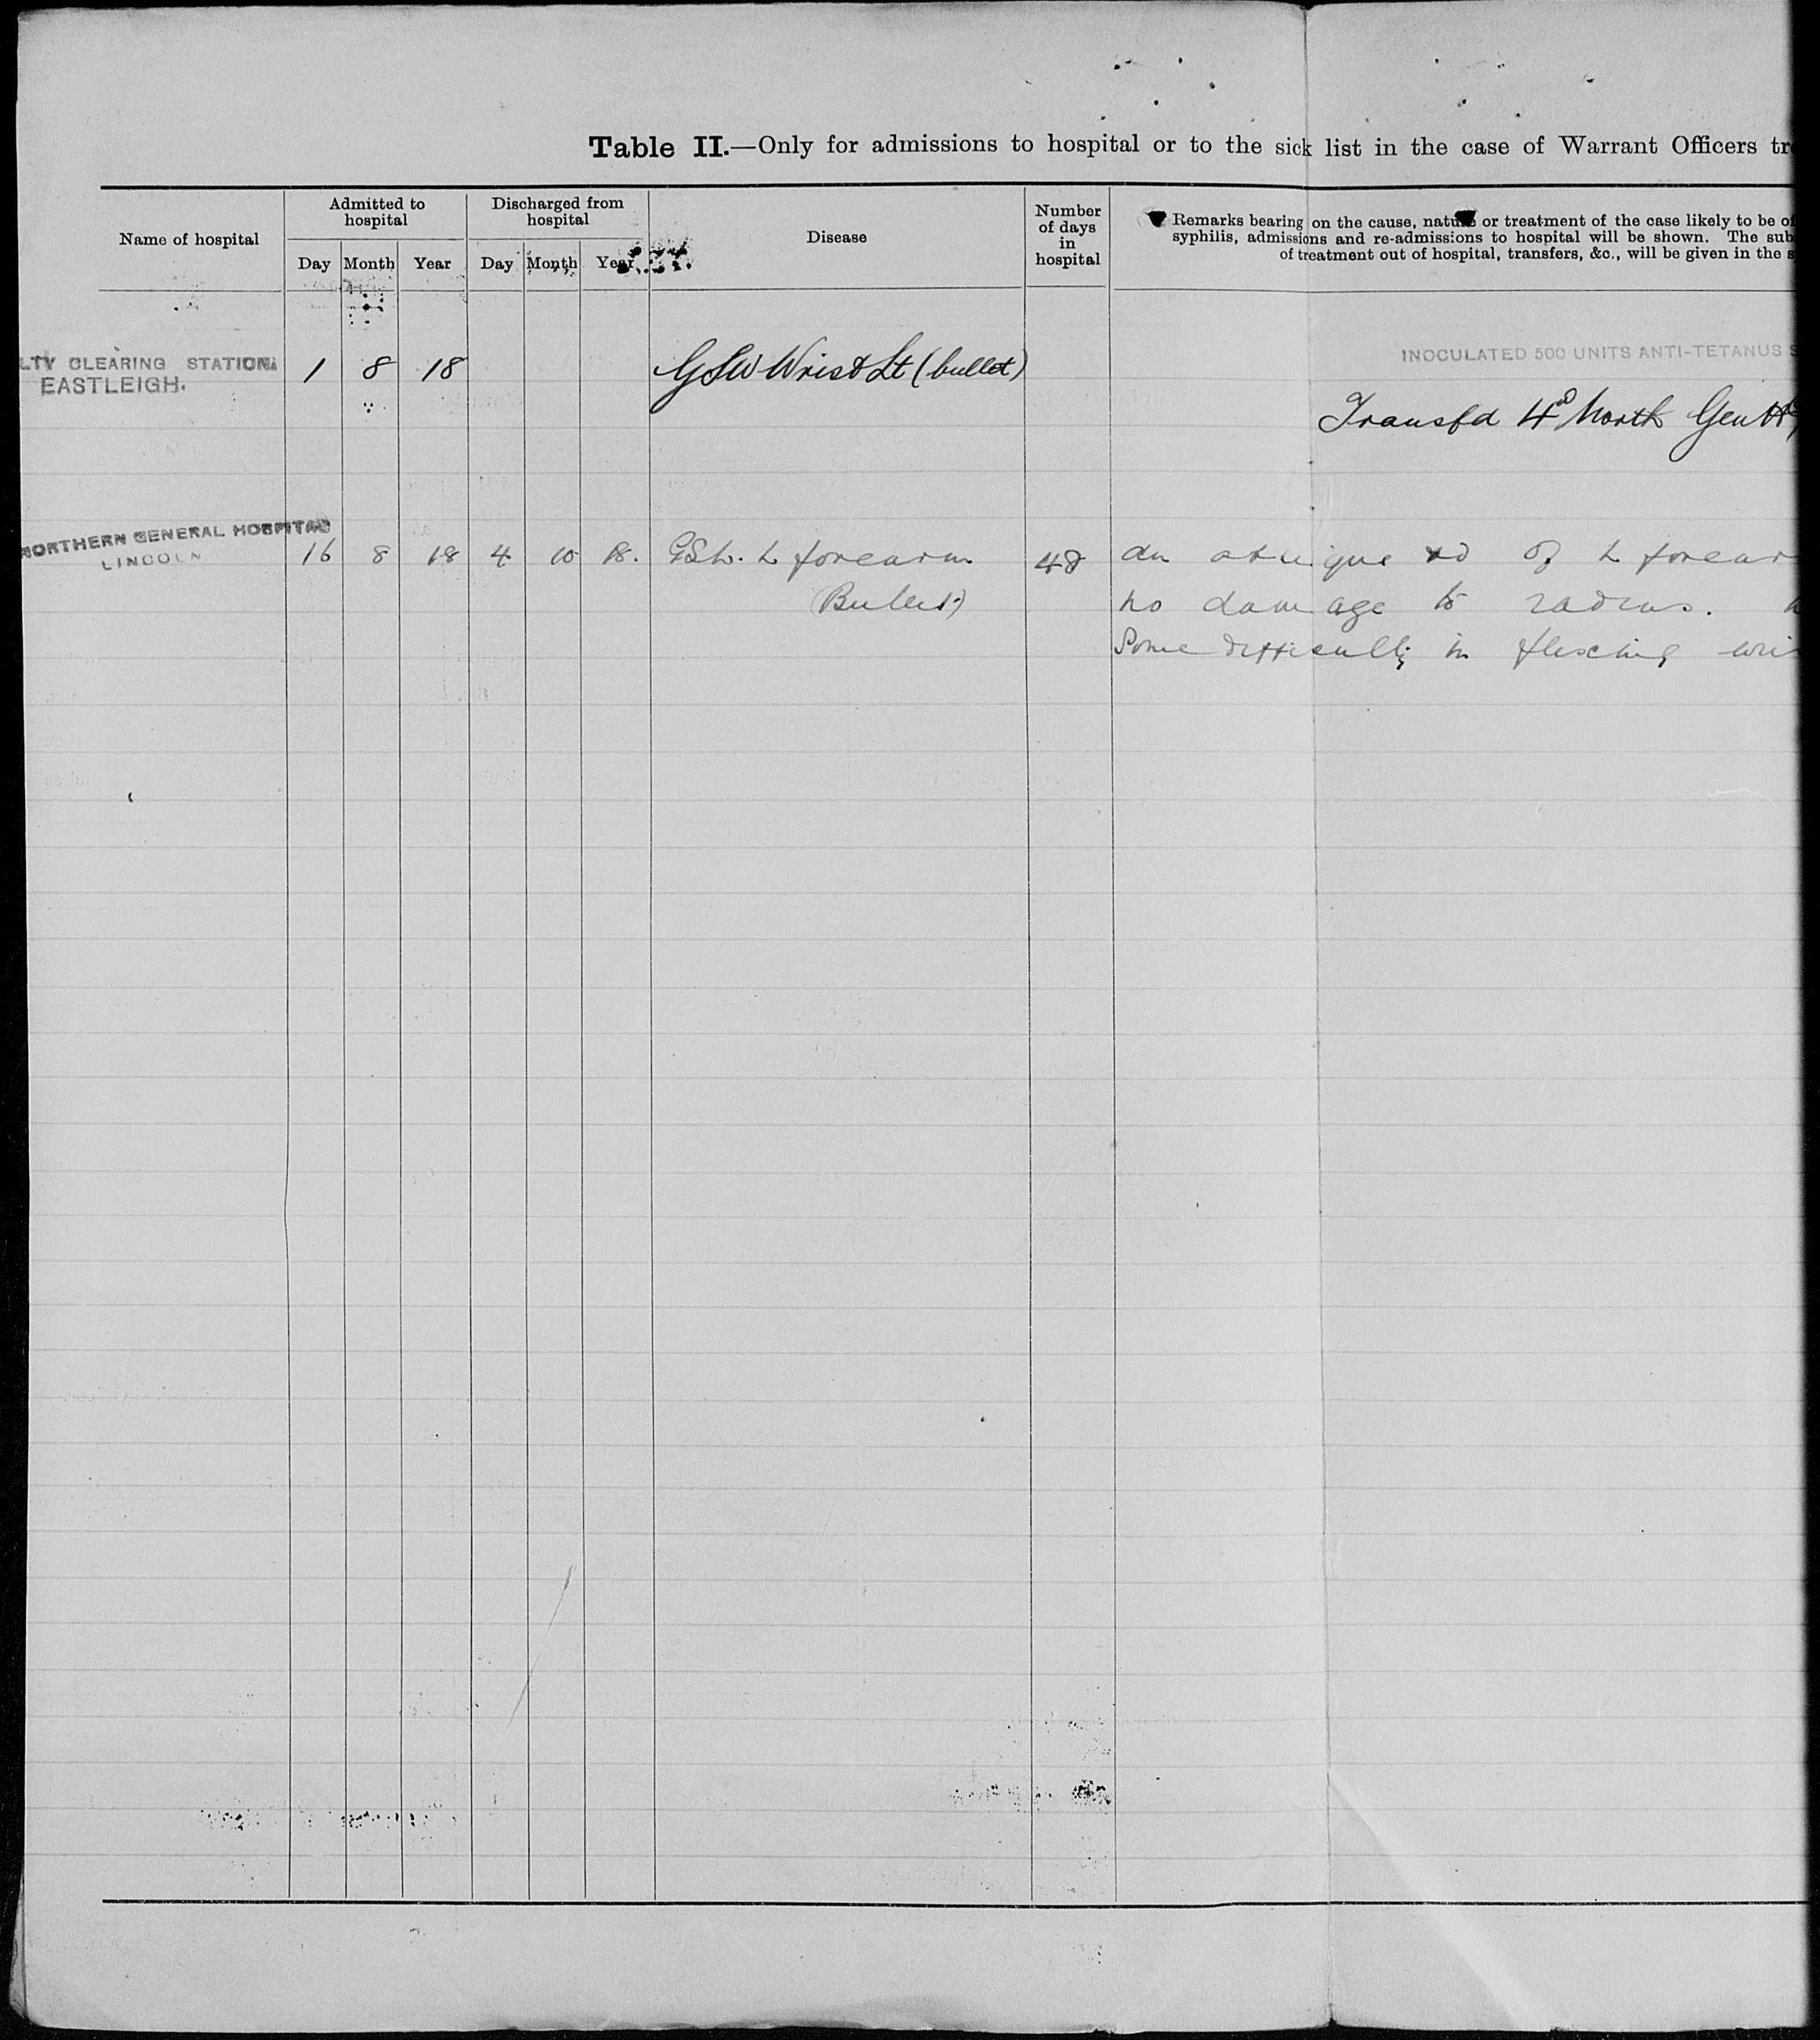 Table II.—Only for admissions to hospital or to the sick list in the case of Warrant Officers tr
Name of hospital
Admitted to
hospital
Day Month Year
Discharged from
hospital
Day Month Year
Disease
Number
of days
in
hospital
Remarks bearing on the cause, nature or treatment of the case likely to be of
syphilis, admissions and re-admissions to hospital will be shown. The sub
of treatment out of hospital, transfers, &c., will be given in the s
LTY CLEARING STATION.
EASTLEIGH.
1 8 18
GSW Wrist Lt (bullet)
INOCULATED 500 UNITS ANTI-TETANUS S
Transfd 4th North Gen H
NORTHERN GENERAL HOSPITAL
LINCOLN
16 8 18 4 10 18. GSW. L forearm
(Bullet)
48
An oblique wd of L forear
no damage to radius.
Some difficulty in flexing wri